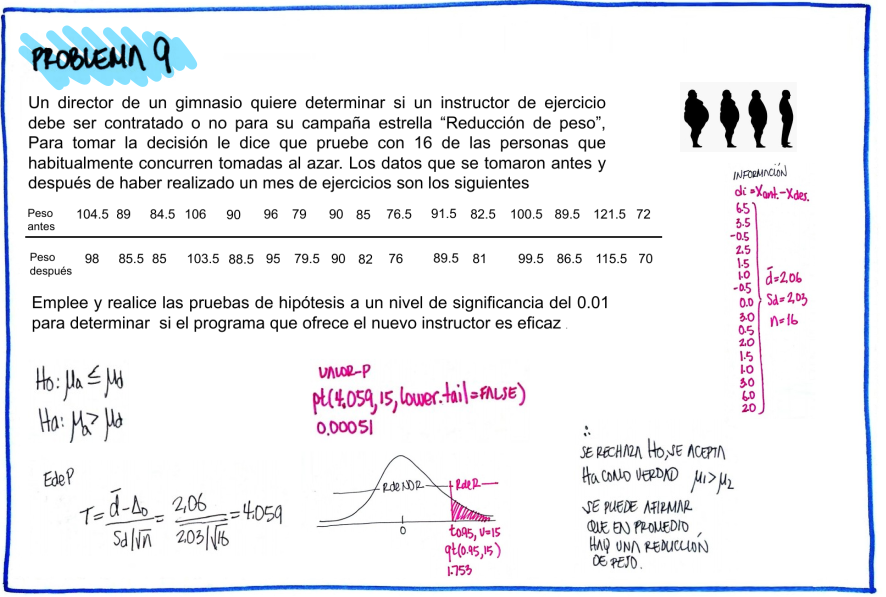 PROBLEMA 9
Un director de un gimnasio quiere determinar si un instructor de ejercicio
debe ser contratado o no para su campaña estrella “Reducción de peso”,
Para tomar la decisión le dice que pruebe con 16 de las personas que
habitualmente concurren tomadas al azar. Los datos que se tomaron antes y
después de haber realizado un mes de ejercicios son los siguientes
Peso antes 104.5 89 84.5 106 90 96 79 90 85 76.5 91.5 82.5 100.5 89.5 121.5 72
Peso después 98 85.5 85 103.5 88.5 95 79.5 90 82 76 89.5 81 99.5 86.5 115.5 70
Emplee y realice las pruebas de hipótesis a un nivel de significancia del 0.01
para determinar si el programa que ofrece el nuevo instructor es eficaz
INFORMACIÓN
di = Xant. - Xdes.
6.5
3.5
-0.5
2.5
1.5
1.0
-0.5
0.0
3.0
0.5
2.0
1.5
1.0
3.0
6.0
2.0
d̄=2,06
Sd=2,03
n=16
Ho: μa ≤ μd
Ha: μa > μd
VALOR-P
pt(4.059, 15, lower.tail=FALSE)
0.00051
EdeP
T = d̄ - Δ₀ / Sd/√n = 2,06 / 2.03/√16 = 4.059
RdeNDR
RdeR
0
t0.95, V=15
qt(0.95, 15)
1.753
∴
SE RECHAZA HO, SE ACEPTA
Ha COMO VERDAD μ1>μ2
SE PUEDE AFIRMAR
QUE EN PROMEDIO
HAY UNA REDUCCIÓN
DE PESO.